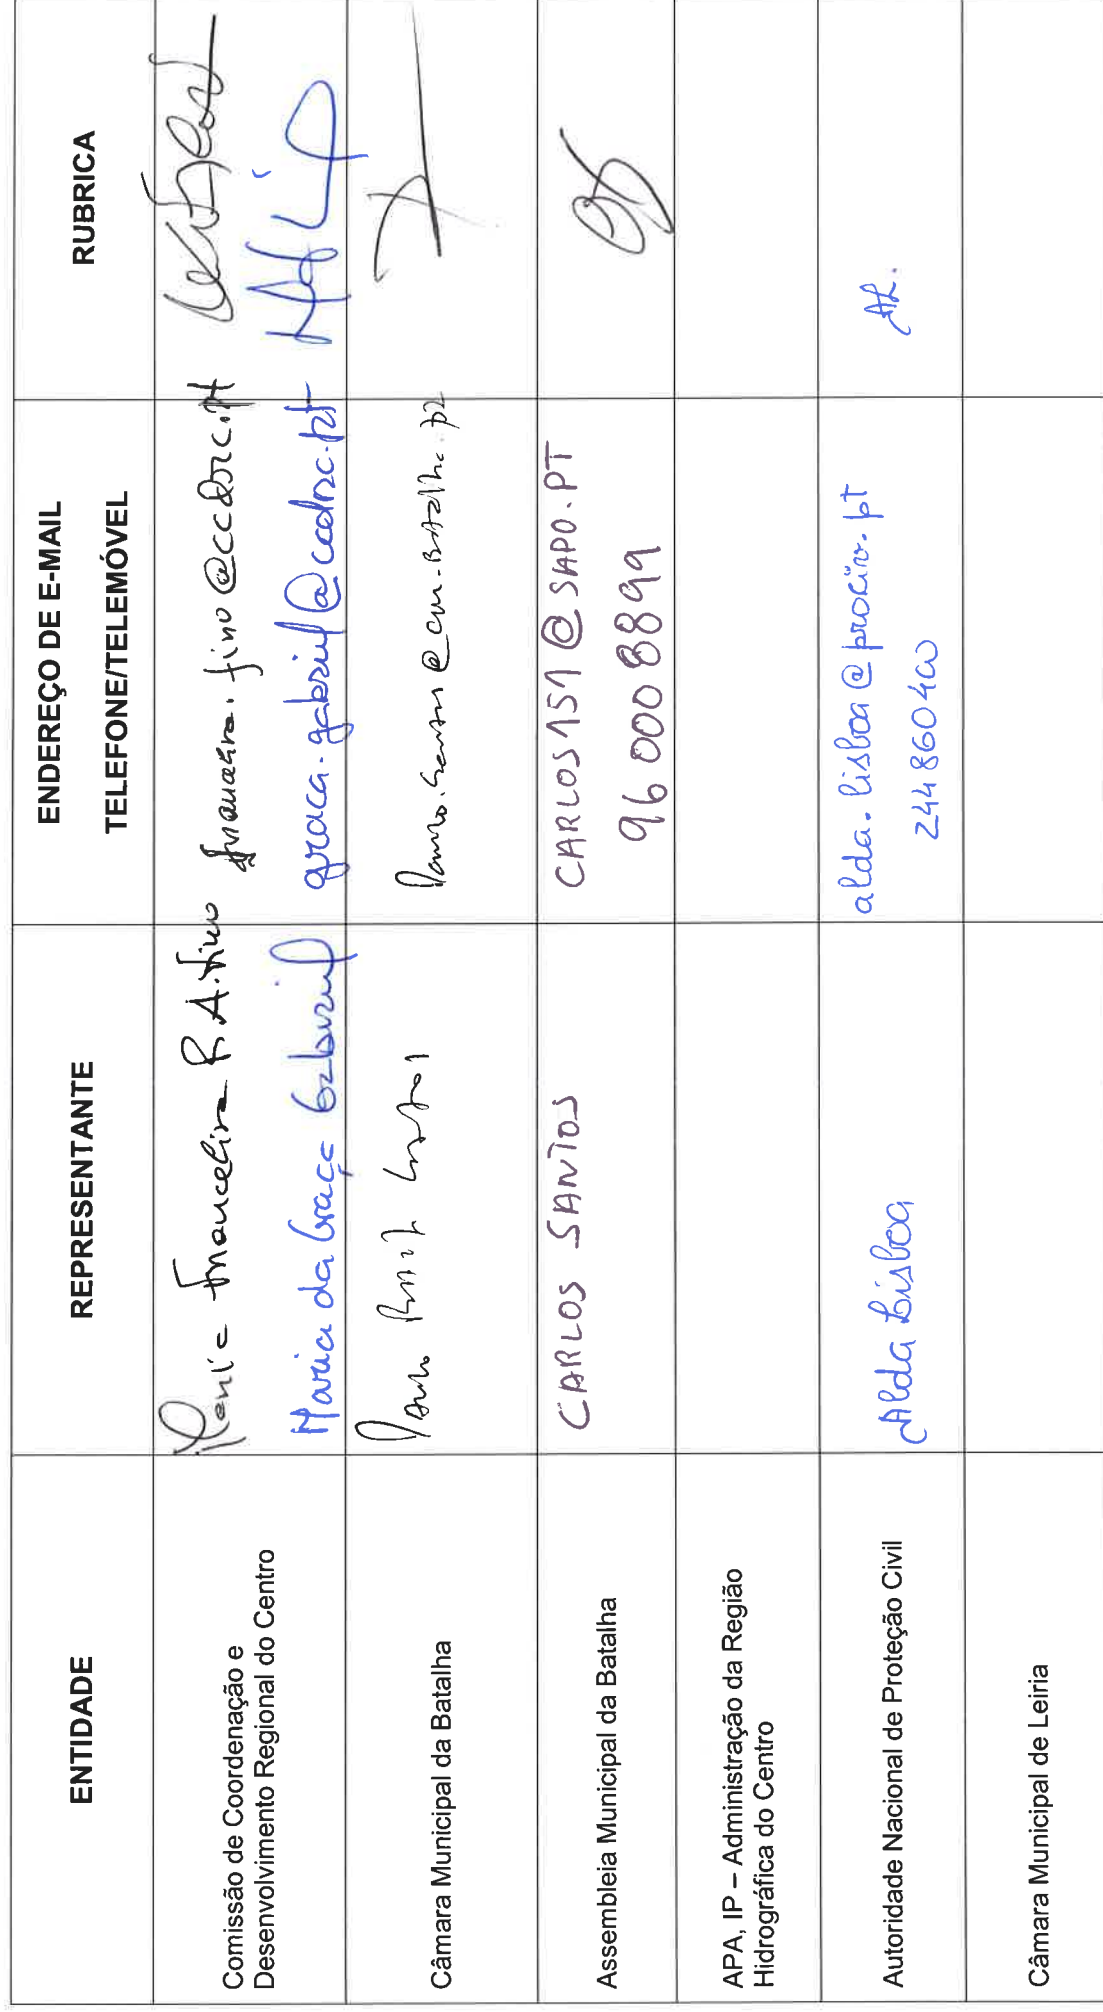 ENTIDADE
REPRESENTANTE
ENDEREÇO DE E-MAIL
TELEFONE/TELEMÓVEL
RUBRICA
Comissão de Coordenação e
Desenvolvimento Regional do Centro
Maria Francelina R. A. Fino
fino@ccdrc.pt
Maria da Graça Gabriel
graca.gabriel@ccdrc.pt
Câmara Municipal da Batalha
Paulo Santos
paulo.santos@cm-batalha.pt
Assembleia Municipal da Batalha
CARLOS SANTOS
CARLOS151@SAPO.PT
96 000 8899
APA, IP – Administração da Região
Hidrográfica do Centro
Autoridade Nacional de Proteção Civil
Alda Lisboa
alda.lisboa@prociv.pt
244860400
AL.
Câmara Municipal de Leiria